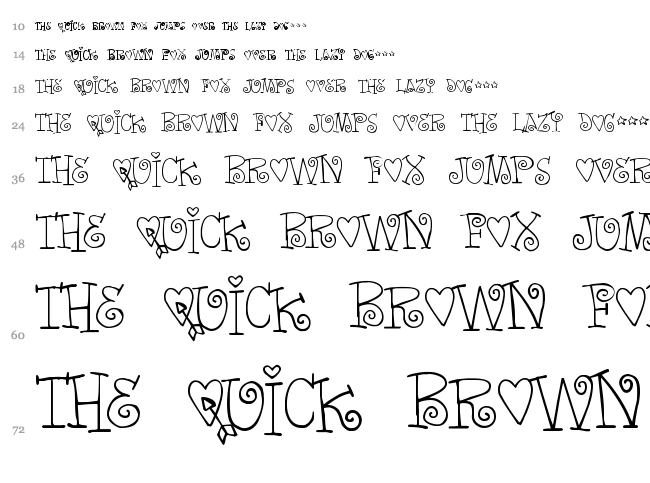 10 THE QUICK BROWN FOX JUMPS OVER THE LAZY DOG***
14 THE QUICK BROWN FOX JUMPS OVER THE LAZY DOG***
18 THE QUICK BROWN FOX JUMPS OVER THE LAZY DOG***
24 THE QUICK BROWN FOX JUMPS OVER THE LAZY DOG***
36 THE QUICK BROWN FOX JUMPS OVER
48 THE QUICK BROWN FOX JUM
60 THE QUICK BROWN FO
72 THE QUICK BROWN